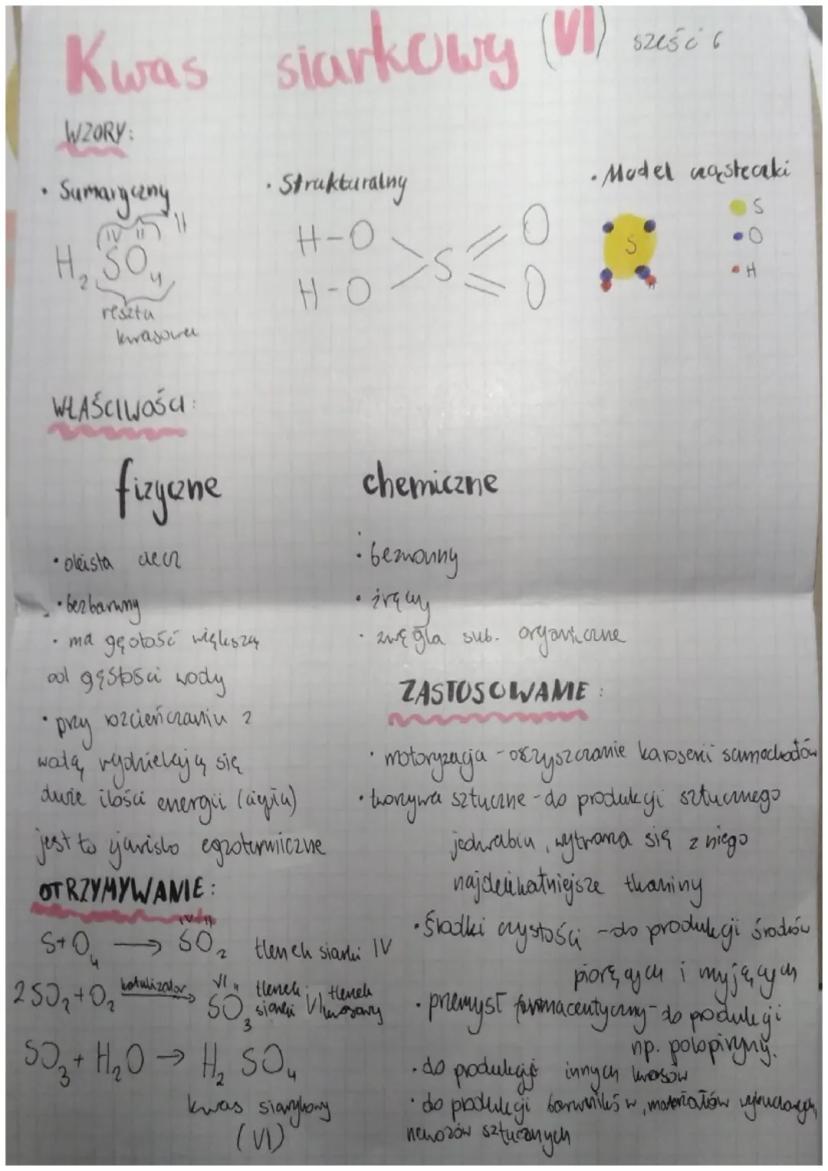 Kwas siarkowy (VI) sześć 6
WZORY:
• Sumaryczny
IV II II
H2SO4
reszta
kwasowa
• Strukturalny
H-O O
S
H-O O
• Model cząsteczki
S
S
O
H
WŁAŚCIWOŚCI:
fizyczne
• oleista ciecz
• bezbarwny
• ma gęstość większą
od gęstości wody
• przy rozcieńczaniu z
wodą wydzielają się
duże ilości energii (ciepła)
jest to zjawisko egzotermiczne
chemiczne
• bezwonny
• żrący
• zwęgla sub. organiczne
OTRZYMYWANIE:
IV II
S+O4 → SO2 tlenek siarki IV
2SO2+O2 katalizator → VI II SO3 tlenek siarki VI tlenek kwasowy
SO3+H2O → H2SO4
kwas siarkowy
(VI)
ZASTOSOWANIE:
• motoryzacja - oczyszczanie karoserii samochodów
• tworzywa sztuczne - do produkcji sztucznego
jedwabiu, wytwarza się z niego
najdelikatniejsze tkaniny
• Środki czystości - do produkcji środków
piorących i myjących
• przemysł farmaceutyczny - do produkcji
np. polopiryny.
• do produkcji innych kwasów
• do produkcji barwników, materiałów wybuchowych,
nawozów sztucznych